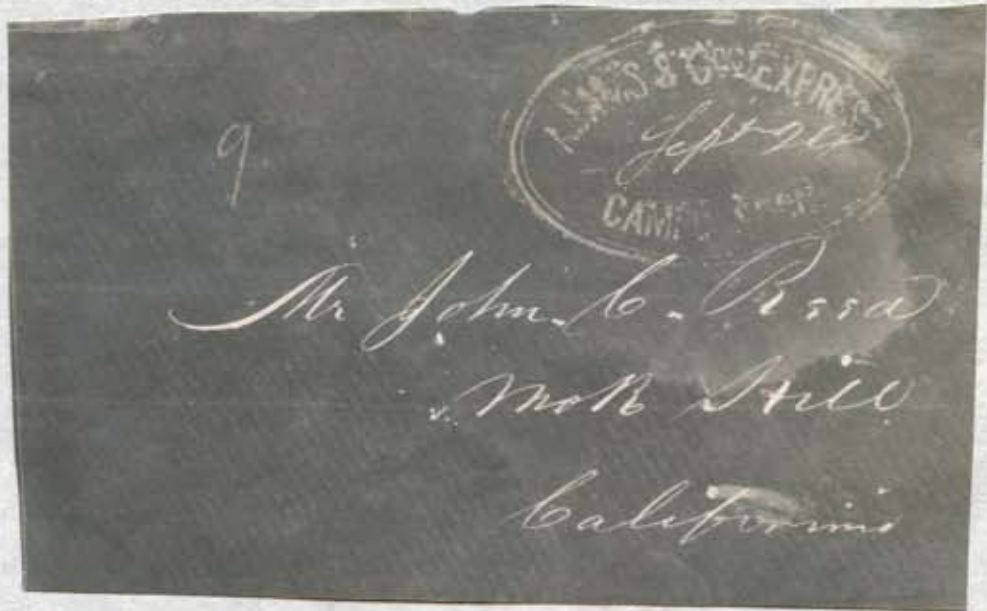 ADAMS & CO'S EXPRESS
Sept
CAMPO
9
Mr John C. Reed
Mok Hill
California